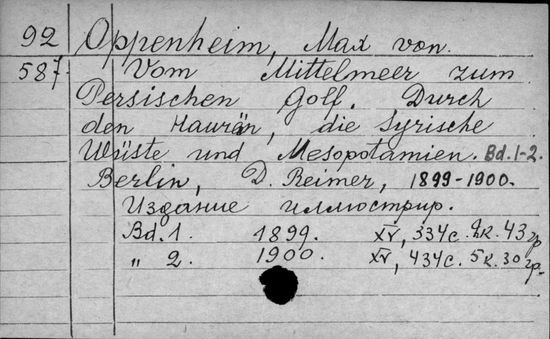 92 Oppenheim, Max von.
587. Vom Mittelmeer zum
Persischen Golf. Durch
den Haurän, die Syrische
Wüste und Mesopotamien. Bd. 1-2.
Berlin, D. Reimer, 1899-1900.
Издание иллюстрир.
Bd. 1. 1899. XV, 334 с. 43 гр
„ 2. 1900. XV, 434 с. 5 к. 30 гр.